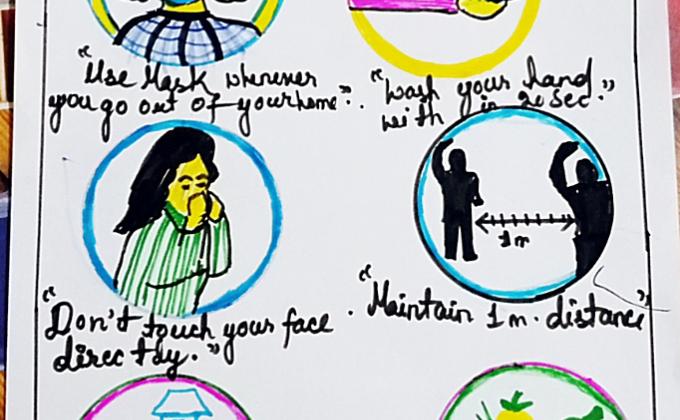 "Use Mask whenever
you go out of your home".
"Wash your hand
with in 20 sec."
1m
"Don't touch your face
directly."
"Maintain 1m. distance"